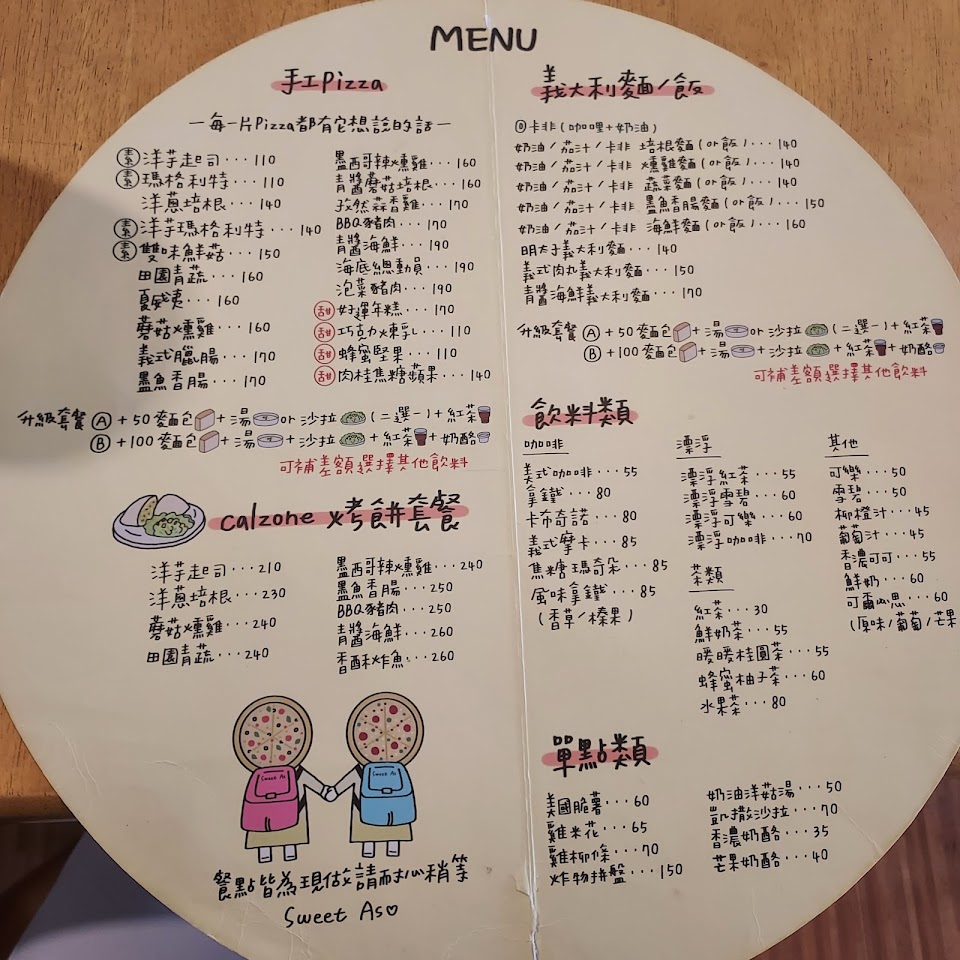 MENU
手工Pizza
一每一片Pizza都有它想說的話一
素 洋芋起司...110
素 瑪格利特...110
洋蔥培根...140
素 洋芋瑪格利特...140
素 雙味鮮菇...150
田園青蔬...160
夏威夷...160
蘑菇燻雞...160
義式臘腸...170
鹽魚香腸...170
墨西哥辣燻雞...160
青醬蘑菇培根...160
孜然蒜香雞...170
BBQ豬肉...170
青醬海鮮...190
海底總動員...190
泡菜豬肉...190
甜 好運年糕...170
甜 巧克力煉乳...110
甜 蜂蜜堅果...110
甜 肉桂焦糖蘋果...140
升級套餐 A +50麵包+湯or沙拉(二選一)+紅茶
B +100麵包+湯+沙拉+紅茶+奶酪
可補差額選擇其他飲料
calzone 烤餅套餐
洋芋起司...210
洋蔥培根...230
蘑菇燻雞...240
田園青蔬...240
墨西哥辣燻雞...240
墨魚香腸...250
BBQ豬肉...250
青醬海鮮...260
香酥炸魚...260
Sweet As
Sweet As
餐點皆為現做 請耐心稍等
Sweet As♡
義大利麵/飯
卡非(咖哩+奶油)
奶油/茄汁/卡非 培根麵(or飯)...140
奶油/茄汁/卡非 燻雞麵(or飯)...140
奶油/茄汁/卡非 蔬菜麵(or飯)...140
奶油/茄汁/卡非 墨魚香腸麵(or飯)...150
奶油/茄汁/卡非 海鮮麵(or飯)...160
明太子義大利麵...140
義式肉丸義大利麵...150
青醬海鮮義大利麵...170
升級套餐 A +50麵包+湯or沙拉(二選一)+紅茶
B +100麵包+湯+沙拉+紅茶+奶酪
可補差額選擇其他飲料
飲料類
咖啡
美式咖啡...55
拿鐵...80
卡布奇諾...80
義式摩卡...85
焦糖瑪奇朵...85
風味拿鐵...85
(香草/榛果)
漂浮
漂浮紅茶...55
漂浮雪碧...60
漂浮可樂...60
漂浮咖啡...70
茶類
紅茶...30
鮮奶茶...55
暖暖桂圓茶...55
蜂蜜柚子茶...60
水果茶...80
其他
可樂...50
雪碧...50
柳橙汁...45
葡萄汁...45
香濃可可...55
鮮奶...60
可爾必思...60
(原味/葡萄/芒果
單點類
美國脆薯...60
雞米花...65
雞柳條...70
炸物拼盤...150
奶油洋菇湯...50
凱撒沙拉...70
香濃奶酪...35
芒果奶酪...40